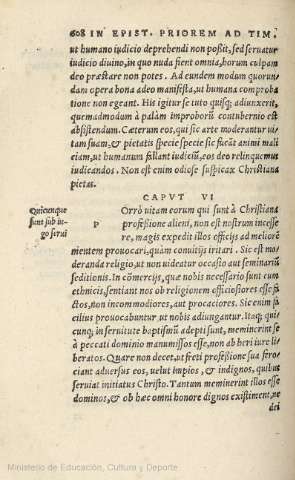 608 IN EPIST. PRIOREM AD TIM.
ut humano iudicio deprehendi non possit, sed seruatur
iudicio diuino, in quo nuda fient omnia, horum culpam
deo præstare non potes. Ad eundem modum quorun
dam opera bona adeo manifesta, ut humana comproba
tione non egeant. His igitur se tuto quisq; adiunxerit,
quemadmodum à palàm improborũ contubernio est
abstinendum. Cæterum eos, qui sic arte moderantur ui
tam suam, & pietatis specie specie sic fucãt animi mali
ciam, ut humanum fallant iudiciũ, eos deo relinquemus
iudicandos. Non est enim odiose suspicax Christiana
pietas.
CAPVT VI
Quicunque
sunt sub iu-
go serui
POrrò uitam eorum qui sunt à Christiana
professione alieni, non est nostrum incesse
re, magis expedit illos officijs ad meliorẽ
mentem prouocari, quàm conuitijs irritari. Sic est mo-
deranda religio, ut non uideatur occasio aut seminariũ
seditionis. In cõmercijs, quæ nobis necessario sunt cum
ethnicis, sentiant nos ob religionem officiosiores esse fa-
ctos, non incommodiores, aut procaciores. Sic enim fa
cilius prouocabuntur ut nobis adiungantur. Itaq; qui-
cunq; in seruitute baptismũ adepti sunt, meminerint se
à peccati dominio manumissos esse, non ab heri iure li-
beratos. Quare non decet, ut freti professione sua fero-
ciant aduersus eos, uelut impios, & indignos, quibus
seruiat initiatus Christo. Tantum meminerint illos esse
dominos, & ob hæc omni honore dignos existiment, ne
dei
Ministerio de Educación, Cultura y Deporte